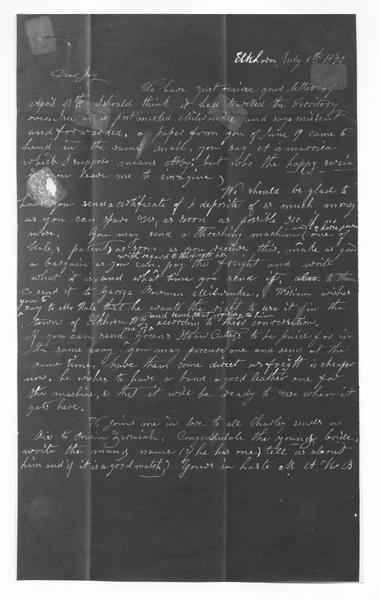 Elkhorn July 6th 1840
Dear Joy
We have just received your letter of
April 11th I should think it had travelled the Territory
over. It is postmarked Milwaukie and says missent
and forwarded. a paper from you of June 19 came to
hand in the same mail, you say it is married
which I suppose means Abby, but who the happy swain
you leave me to imagine,
We should be glad to
have you send a certificate of deposite of as much money
as you can spare us, as soon as possible 300 if no
more. You may send a Threshing machine and 2 horse power
Hales patent as soon as you receive this, make as good
a bargain as you can with regard to the freight &c, pay the freight and write
what it is, and what time you send it, also to the
Co send it to George Bowman Milwaukie, William wishes
you to say to Mr Hale that he wants the right to use it in the
town of Elkhorn Wis and send that right to him according to their conversation.
If you can send one of Greens Straw Cutters to be paid for in
the same way you may procure one and send at the
same time, have them come direct as freight is cheaper
now, he wishes to have a band a good leather one for
the machine, & that it will be ready to use when it
gets here.
joins me in love to all Charley sends a
kix to Cousin Zeruiah. Congratulate the young bride,
write the man's name (if he has one) tell us about
him and if it is a good match) Yours in haste M A H B